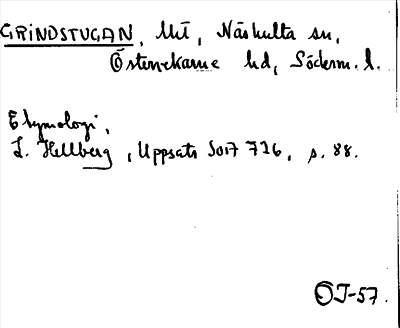 GRINDSTUGAN, Utt, Näshulta sn,
Österrekarne hd, Söderm. l.
Etymologi,
L. Hellberg, Uppsats SOIF 726, s. 88.
ÖJ-57.